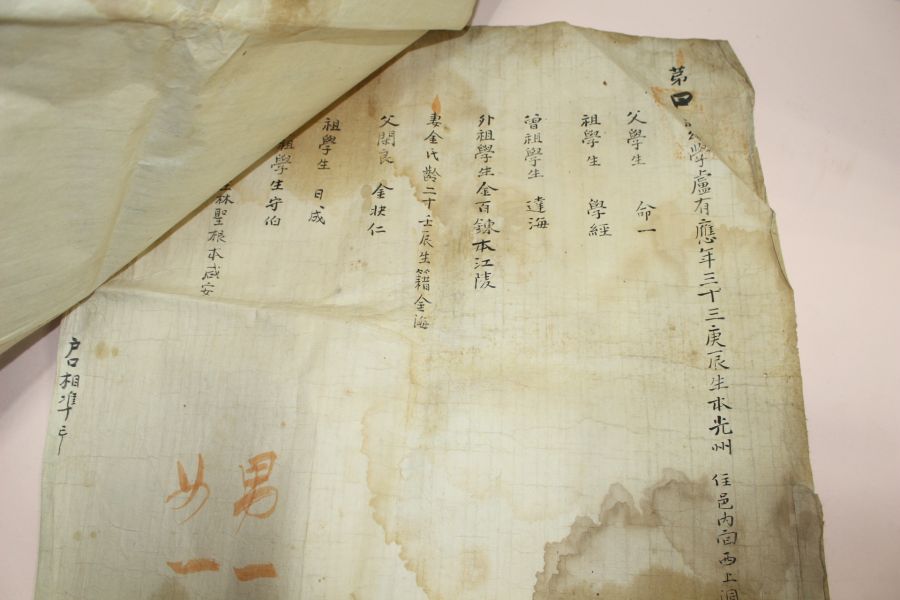 第口
學盧有應年三十三庚辰生本光州 住邑內面西上洞
父學生 命一
祖學生 學經
曾祖學生 達海
外祖學生金百鍊本江陵
妻金氏齡二十壬辰生籍金海
父閑良 金狀仁
祖學生 日成
祖學生守伯
林聖根本咸安
戶口相準
男一
女一